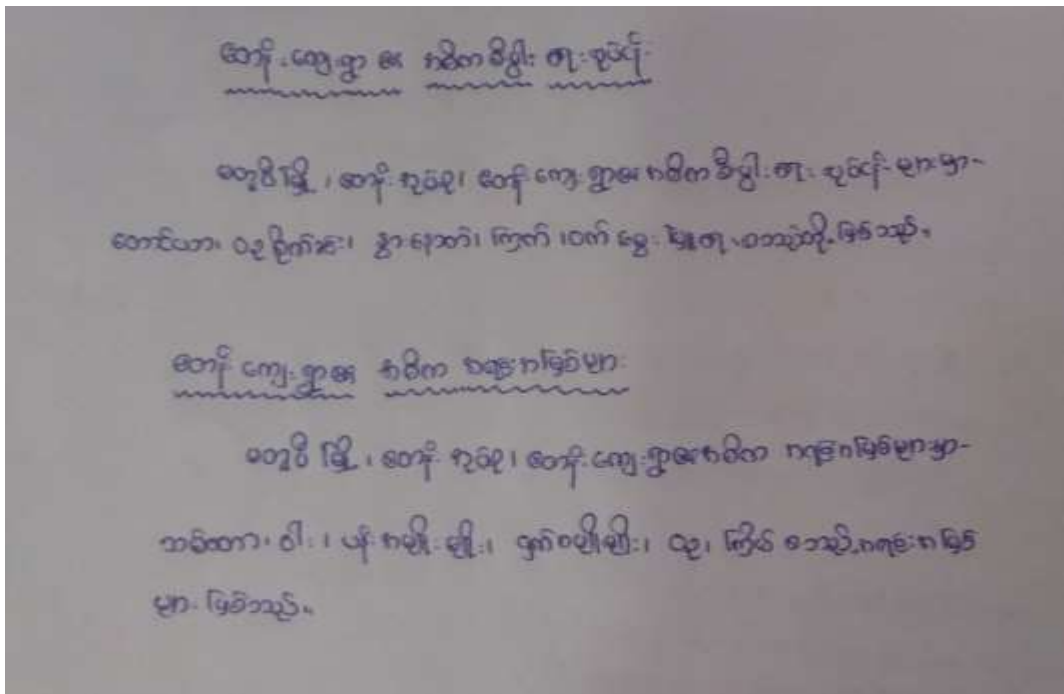 တောန်းကျေးရွာ၏ အဓိကစီပွါးရေးလုပ်ငန်း
မတူပီမြို့၊ တောန်းအုပ်စု၊ တောန်းကျေးရွာ၏အဓိကစီပွါးရေးလုပ်ငန်းများမှာ-
တောင်ယာ၊ ဝဥစိုက်ခင်း၊ နွားနောက်၊ ကြက်၊ ဝက်မွေးမြူရေး၊ စသည်တို့ဖြစ်သည်။
တောန်းကျေးရွာ၏ အဓိက အရင်းအမြစ်များ
မတူပီမြို့၊ တောန်းအုပ်စု၊ တောန်းကျေးရွာ၏အဓိက အရင်းအမြစ်များမှာ-
သစ်တော၊ ဝါး၊ ပန်းအမျိုးမျိုး၊ ငှက်အမျိုးမျိုး၊ ဝဥ၊ ကြိမ် စသည့်အရင်းအမြစ်
များ ဖြစ်သည်။